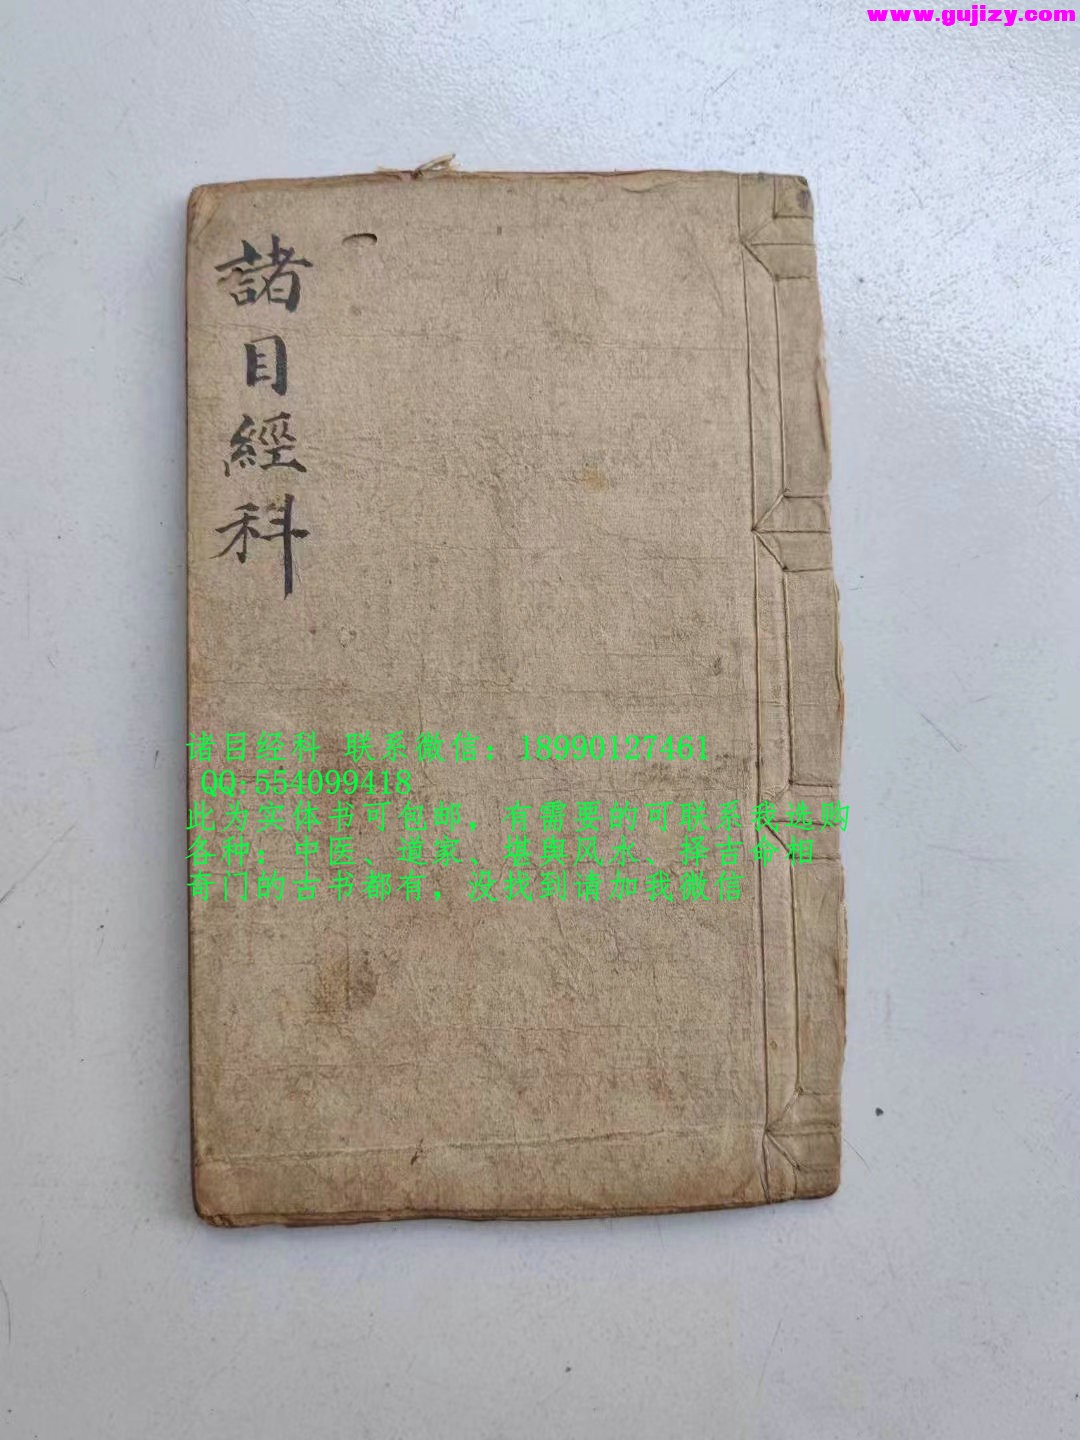 www.gujizy.com
諸目經科
诸目经科 联系微信：18990127461
QQ:554099418
此为实体书可包邮，有需要的可联系我选购
各种：中医、道家、堪舆风水、择吉命相
奇门的古书都有，没找到请加我微信